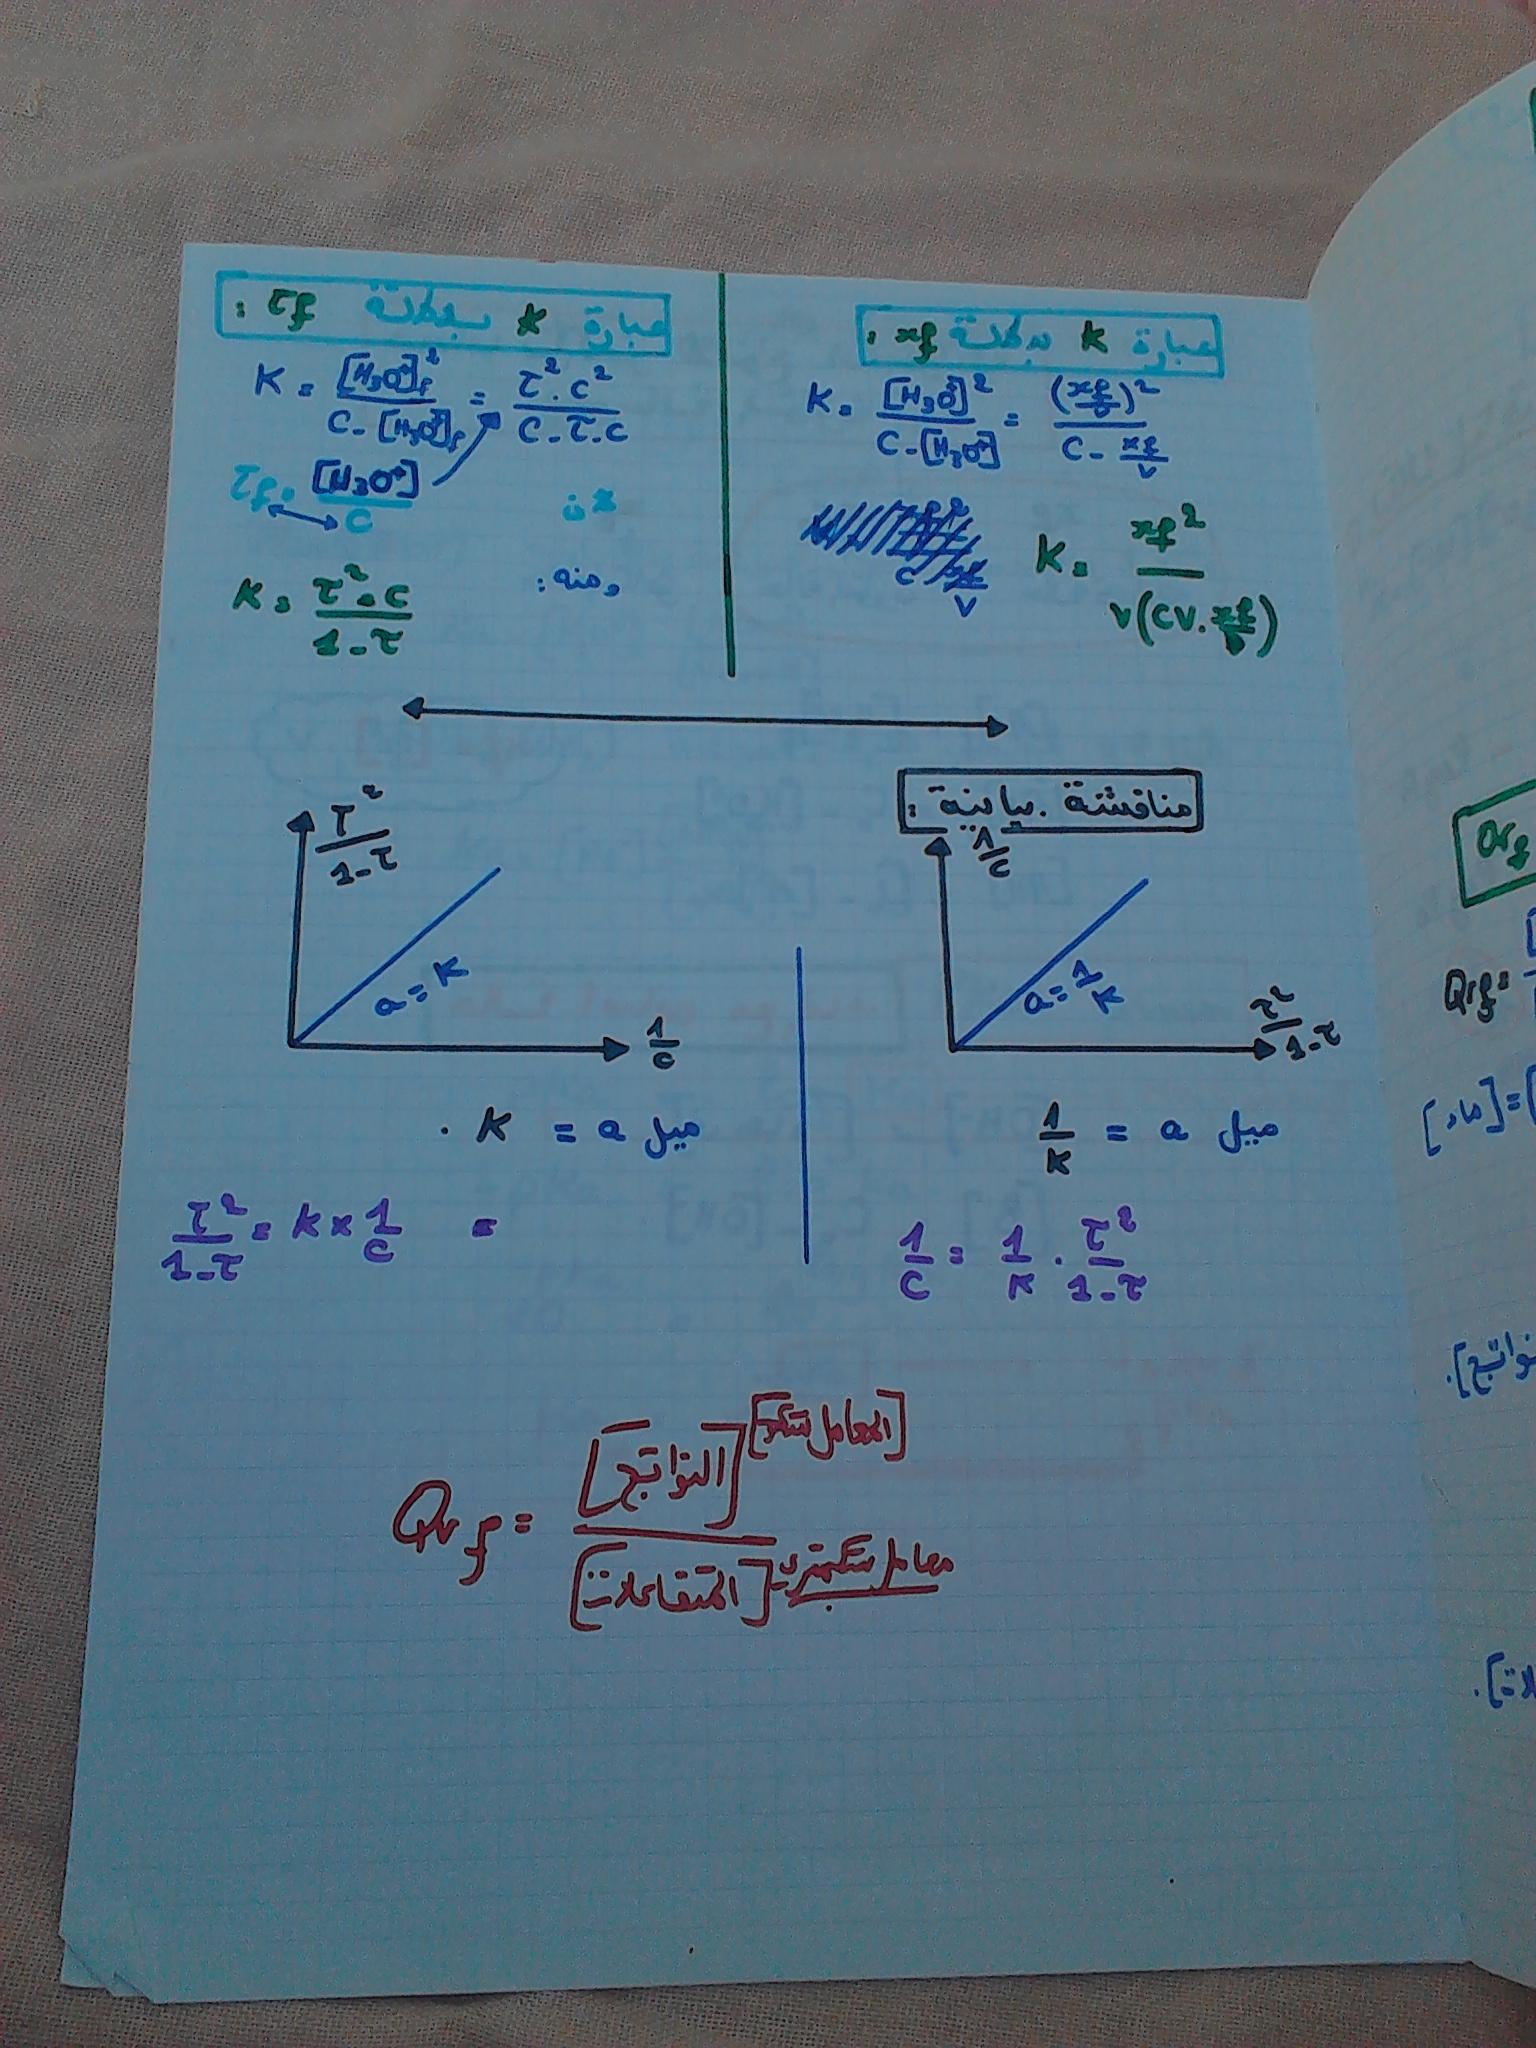 عبارة K بدلالة xf :
K = [H3O+]² / C - [H3O+] = (xf/v)² / C - xf/v
K = xf² / v(CV - xf/v)
عبارة K بدلالة τf :
K = [H3O+]f² / C - [H3O+]f = τ² . C² / C - τ . C
τf = [H3O+] / C
ومنه :
K = τ² . C / 1 - τ
مناقشة بيانية :
1/C
a = 1/K
τ² / 1 - τ
ميل a = 1/K
1/C = 1/K . τ² / 1 - τ
τ² / 1 - τ
a = K
1/C
ميل a = K .
τ² / 1 - τ = K × 1/C =
Qrf = [النواتج] / [المتفاعلات]
Qrf
Qrf =